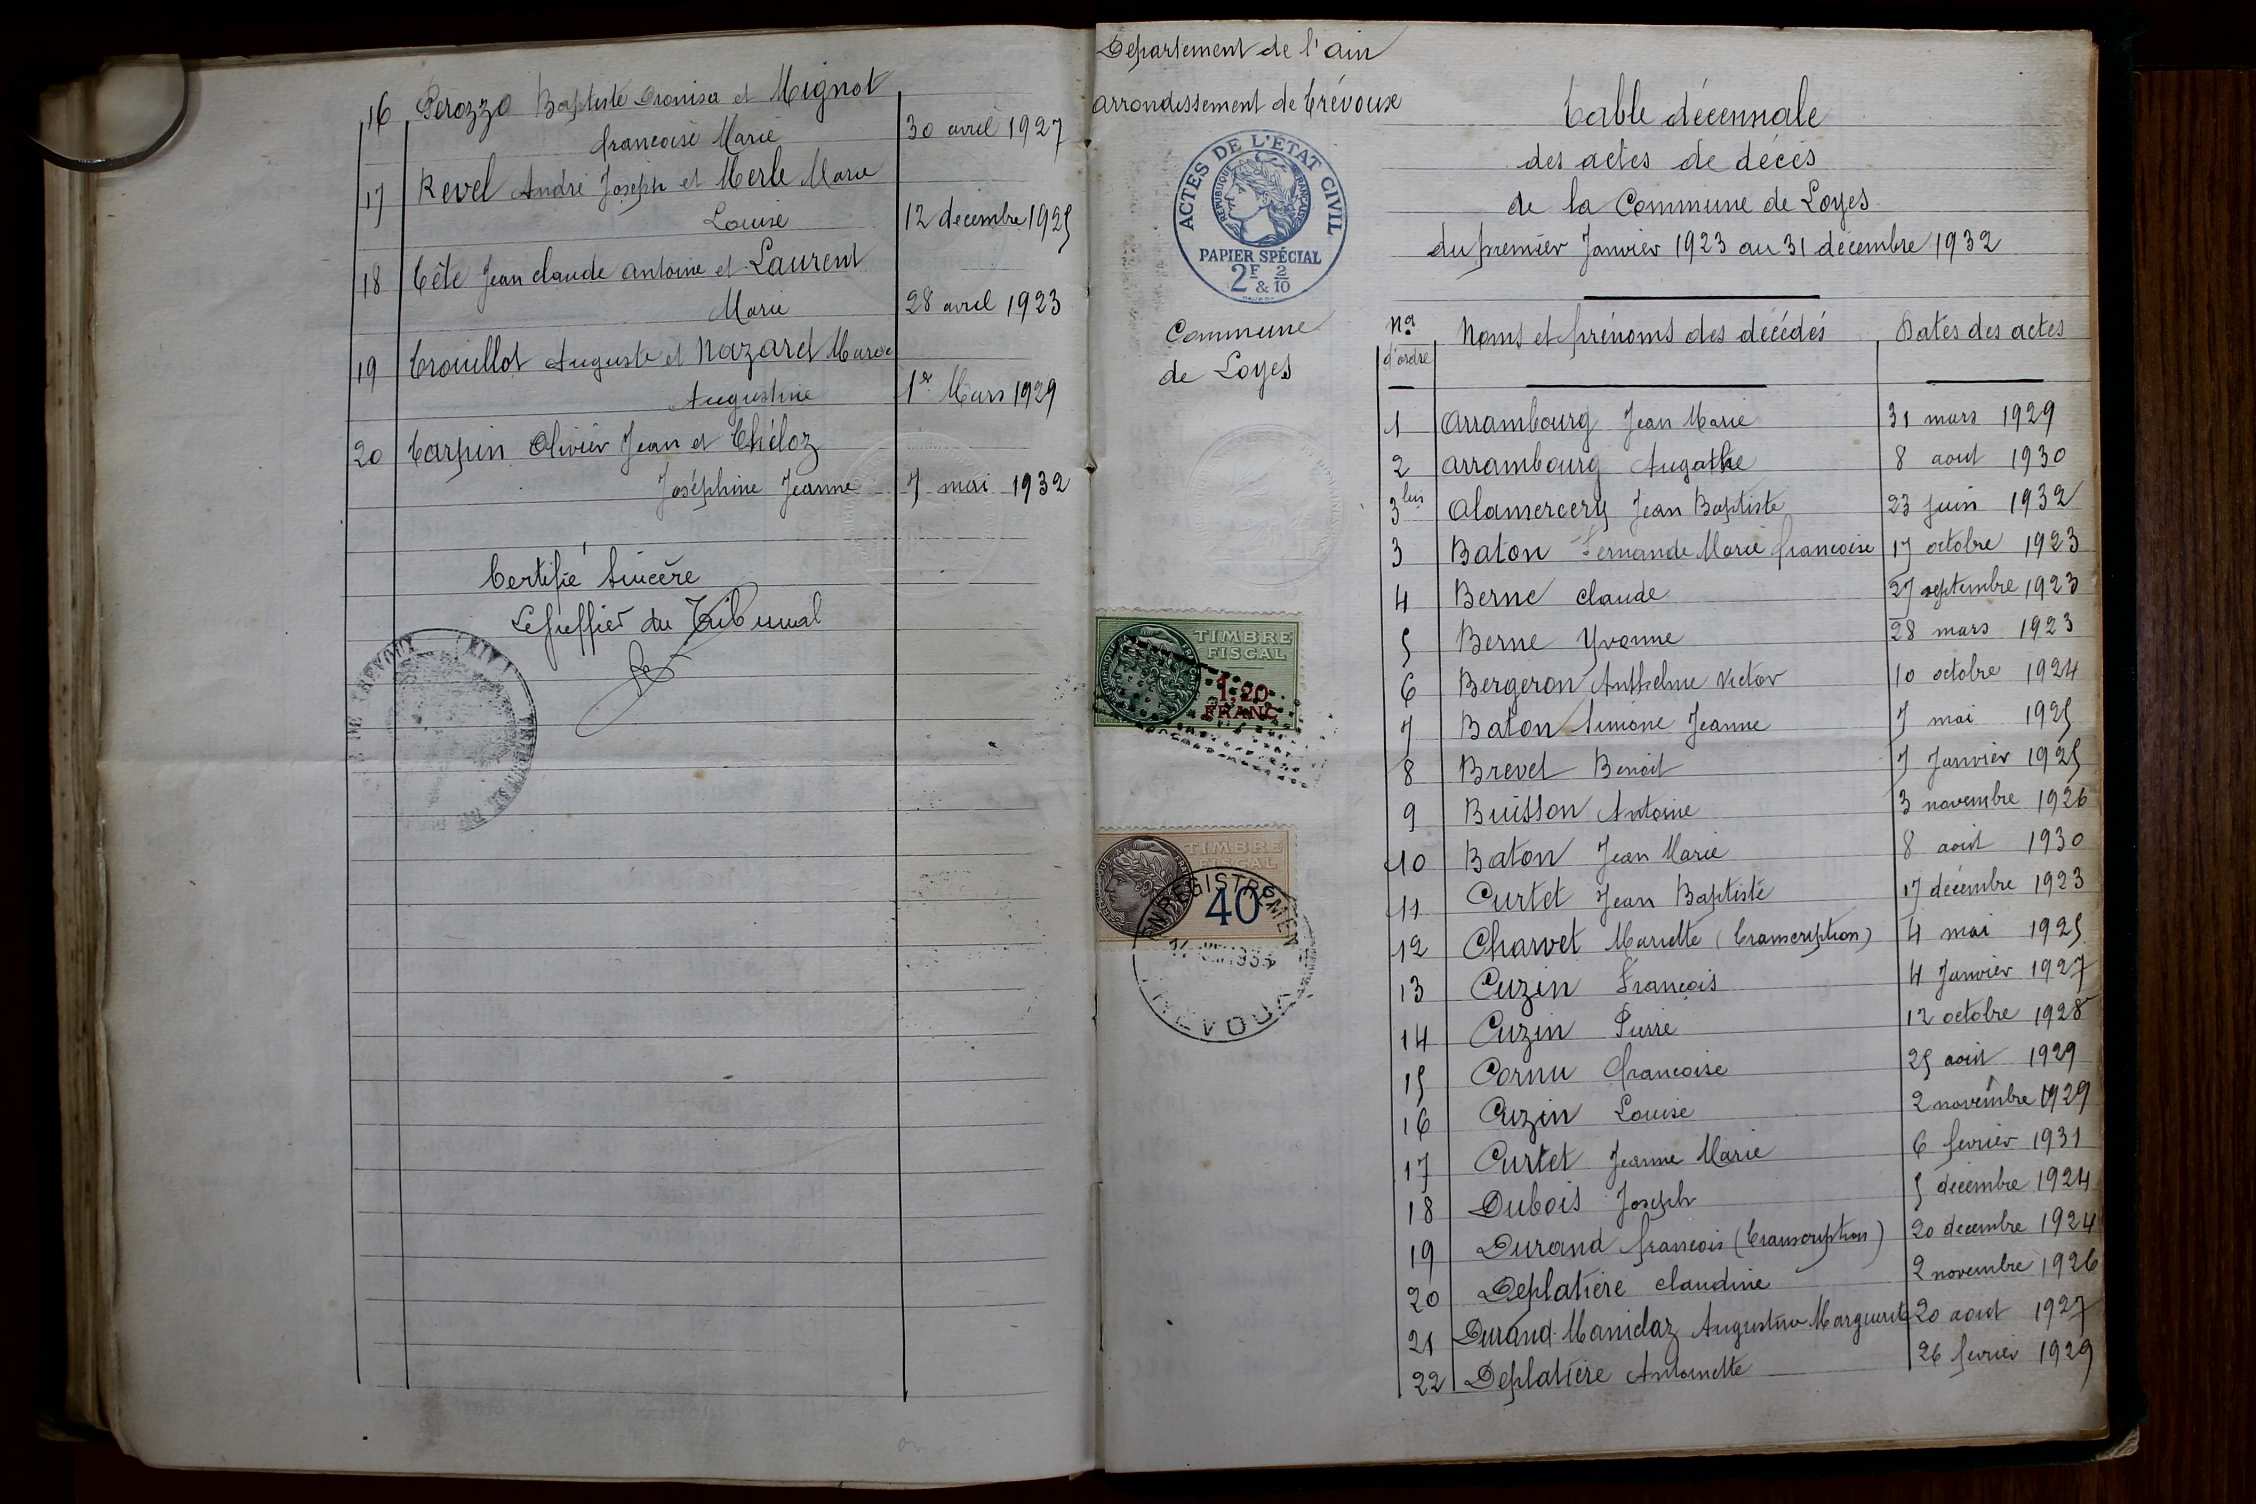 16 Perozzo Baptiste Dionisa et Mignot
francoise Marie 30 avril 1927
17 Revel André Joseph et Merle Marie
Louise 12 decembre 1925
18 Tête Jean claude antoine et Laurent
Marie 28 avril 1923
19 Trouillot Auguste et Nazaret Marie
Augustine 1er Mars 1929
20 Tarpin Olivier Jean et Chéloz
Joséphine Jeanne 7 mai 1932
Certifié Sincère
Le Greffier du Tribunal
Departement de l'ain
arrondissement de Trévoux
ACTES DE L'ETAT CIVIL
REPUBLIQUE FRANÇAISE
PAPIER SPÉCIAL
2F & 2/10
Commune
de Loyes
TIMBRE
FISCAL
1,20
FRANC
TIMBRE
FISCAL
40
ENREGISTREMENT
TREVOUX
Table décennale
des actes de décès
de la Commune de Loyes
du premier Janvier 1923 au 31 décembre 1932
No d'ordre Noms et prénoms des décédés Dates des actes
1 Arrambourg Jean Marie 31 mars 1929
2 Arrambourg Augathe 8 aout 1930
3 bis Alamercery Jean Baptiste 23 juin 1932
3 Baton Fernande Marie francoise 17 octobre 1923
4 Berne claude 27 septembre 1923
5 Berne Yvonne 28 mars 1923
6 Bergeron Anthelme Victor 10 octobre 1924
7 Baton Simone Jeanne 7 mai 1925
8 Brevet Benoit 7 Janvier 1925
9 Buisson Antoine 3 novembre 1926
10 Baton Jean Marie 8 août 1930
11 Curtet Jean Baptiste 17 décembre 1923
12 Charvet Mariette (Transcription) 4 mai 1925
13 Cuzin François 4 Janvier 1927
14 Cuzin Pierre 12 octobre 1928
15 Cornu francoise 25 août 1929
16 Cuzin Louise 2 novembre 1929
17 Curtet Jeanne Marie 6 fevrier 1931
18 Dubois Joseph 5 décembre 1924
19 Durand francois (Transcription) 20 decembre 1924
20 Deplatière claudine 2 novembre 1926
21 Durand-Maniclaz Augustine Marguerite 20 aout 1927
22 Deplatière Antoinette 26 fevrier 1929